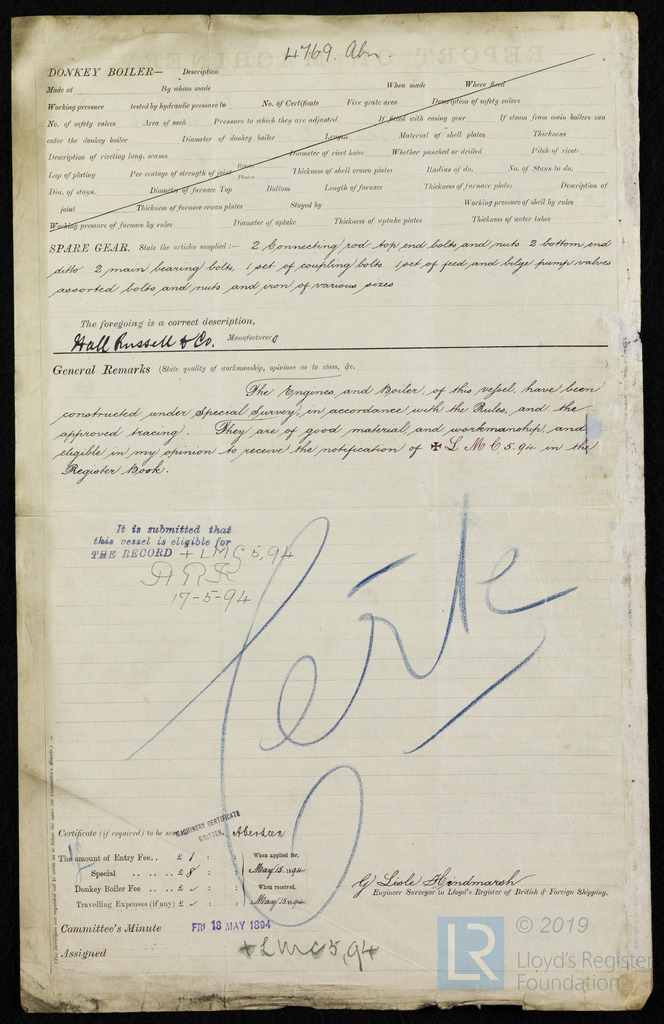 4769. Abn.
DONKEY BOILER— Description
Made at By whom made When made Where fixed
Working pressure tested by hydraulic pressure to No. of Certificate Fire grate area Description of safety valves
No. of safety valves Area of each Pressure to which they are adjusted If fitted with easing gear If steam from main boilers can
enter the donkey boiler Diameter of donkey boiler Length Material of shell plates Thickness
Description of riveting long. seams Diameter of rivet holes Whether punched or drilled Pitch of rivets
Lap of plating Per centage of strength of joint Rivets Plates Thickness of shell crown plates Radius of do. No. of Stays to do.
Dia. of stays. Diameter of furnace Top Bottom Length of furnace Thickness of furnace plates Description of
joint Thickness of furnace crown plates Stayed by Working pressure of shell by rules
Working pressure of furnace by rules Diameter of uptake Thickness of uptake plates Thickness of water tubes
SPARE GEAR. State the articles supplied:— 2 Connecting rod top end bolts, and nuts 2 bottom end
ditto 2 main bearing bolts, 1 set of coupling bolts 1 set of feed and bilge pump valves
assorted bolts and nuts and iron of various sizes
The foregoing is a correct description,
Hall Russell & Co. Manufacturer
General Remarks (State quality of workmanship, opinions as to class, &c.
The Engines and Boiler, of this vessel, have been
constructed under Special Survey, in accordance with the Rules, and the
approved tracing. They are of good material, and workmanship, and
eligible in my opinion to receive the notification of ✠ L M C 5.94 in the
Register Book.
It is submitted that
this vessel is eligible for
THE RECORD + LMC 5,94
17-5-94
Certificate (if required) to be sent Aberdeen
MACHINERY CERTIFICATE
WRITTEN.
The amount of Entry Fee.. £ 1 : : When applied for,
Special .. .. .. £ 8 : : May 15 1894
Donkey Boiler Fee .. .. .. £ : : When received,
Travelling Expenses (if any) £ : : May 15 1894
G Lisle Hindmarsh
Engineer Surveyor to Lloyd's Register of British & Foreign Shipping.
Committee's Minute FRI 18 MAY 1894
Assigned + LMC 5,94
LR © 2019
Lloyd's Register
Foundation